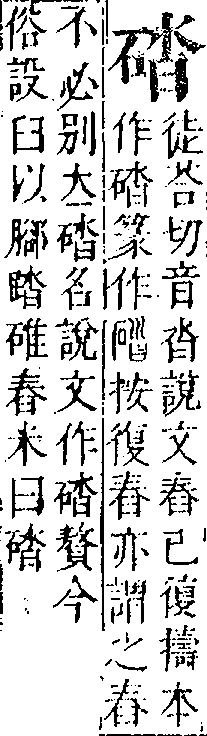 碏
徒荅切音沓說文舂已復擣本
作碏篆作䃚按復舂亦謂之舂
不必別大碏名說文作碏贅今
俗設臼以腳踏碓舂米曰碏